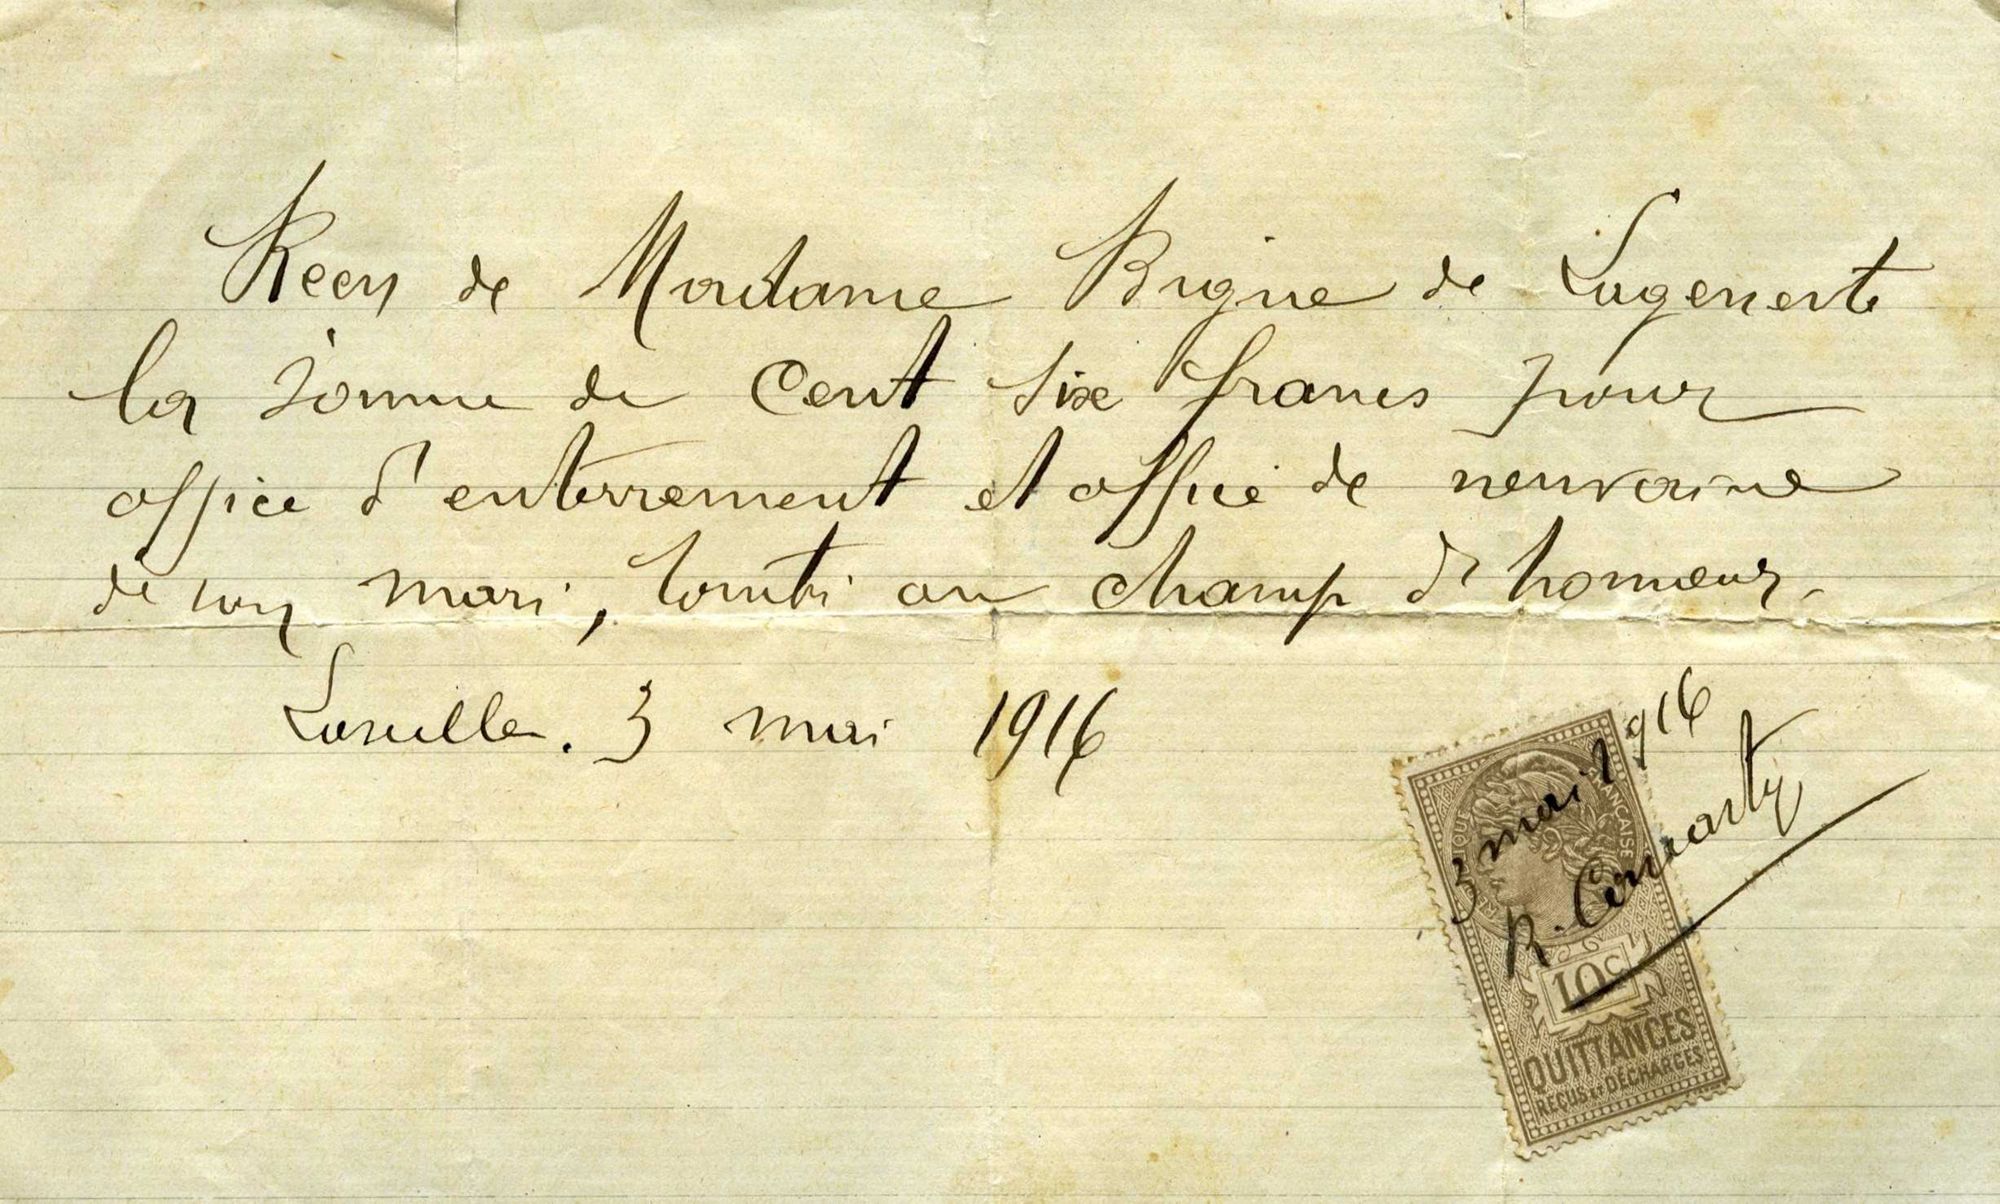 Reçu de Madame Bigne de Lagenerte
la somme de Cent six francs pour
office d'enterrement et office de neuvaine
de son mari, tombé au champ d'honneur.
3 mai 1916
3 mai 1916
R.
RÉPUBLIQUE FRANÇAISE
10c
QUITTANCES
REÇUS ET DÉCHARGES